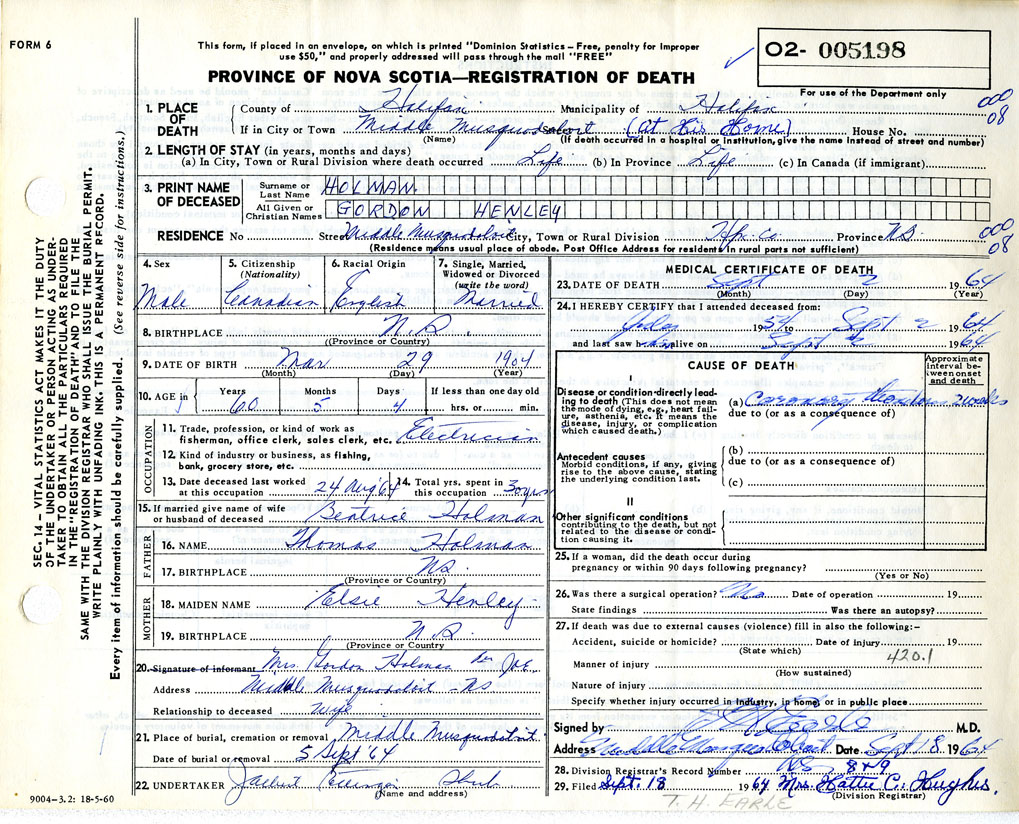 FORM 6
This form, if placed in an envelope, on which is printed "Dominion Statistics – Free, penalty for improper
use $50," and properly addressed will pass through the mail "FREE"
PROVINCE OF NOVA SCOTIA—REGISTRATION OF DEATH
02- 005198
For use of the Department only
000
08
1. PLACE OF DEATH
County of Halifax Municipality of Halifax
If in City or Town Middle Musquodoboit (At His Home) House No.
(Name) (If death occurred in a hospital or institution, give the name instead of street and number)
2. LENGTH OF STAY (in years, months and days)
(a) In City, Town or Rural Division where death occurred Life (b) In Province Life (c) In Canada (if immigrant)
3. PRINT NAME OF DECEASED
Surname or Last Name HOLMAN
All Given or Christian Names GORDON HENLEY
RESIDENCE No Street Middle Musquodoboit City, Town or Rural Division Hfx Co Province N.S.
000
08
(Residence means usual place of abode. Post Office Address for residents in rural parts not sufficient)
SEC. 14 – VITAL STATISTICS ACT MAKES IT THE DUTY
OF THE UNDERTAKER OR PERSON ACTING AS UNDER-
TAKER TO OBTAIN ALL THE PARTICULARS REQUIRED
IN THE "REGISTRATION OF DEATH" AND TO FILE THE
SAME WITH THE DIVISION REGISTRAR WHO SHALL ISSUE THE BURIAL PERMIT.
WRITE PLAINLY WITH UNFADING INK. THIS IS A PERMANENT RECORD.
Every item of information should be carefully supplied. (See reverse side for instructions.)
4. Sex Male
5. Citizenship (Nationality) Canadian
6. Racial Origin English
7. Single, Married, Widowed or Divorced (write the word) Married
8. BIRTHPLACE N.S.
(Province or Country)
9. DATE OF BIRTH Mar 29 1904
(Month) (Day) (Year)
10. AGE in Years 60 Months 5 Days 4 If less than one day old
hrs. or min.
OCCUPATION
11. Trade, profession, or kind of work as
fisherman, office clerk, sales clerk, etc. Electrician
12. Kind of industry or business, as fishing,
bank, grocery store, etc.
13. Date deceased last worked
at this occupation 24 Aug 64
14. Total yrs. spent in
this occupation 30 yrs
15. If married give name of wife
or husband of deceased Beatrice Holman
FATHER
16. NAME Thomas Holman
17. BIRTHPLACE N.S.
(Province or Country)
MOTHER
18. MAIDEN NAME Elsie Henley
19. BIRTHPLACE N.S.
(Province or Country)
20. Signature of informant Mrs. Gordon Holman
Address Middle Musquodoboit - NS
Relationship to deceased Wife
21. Place of burial, cremation or removal Middle Musquodoboit
Date of burial or removal 5 Sept '64
22. UNDERTAKER
(Name and address)
9004–3.2: 18-5-60
MEDICAL CERTIFICATE OF DEATH
23. DATE OF DEATH Sept 2 1964
(Month) (Day) (Year)
24. I HEREBY CERTIFY that I attended deceased from:
July 1954 to Sept 2 1964
and last saw him alive on Sept 2 1964
CAUSE OF DEATH
Approximate interval between onset and death
I
Disease or condition directly lead-
ing to death (This does not mean
the mode of dying, e.g., heart fail-
ure, asthenia, etc. It means the
disease, injury, or complication
which caused death.)
(a) coronary 2 weeks
due to (or as a consequence of)
Antecedent causes
Morbid conditions, if any, giving
rise to the above cause, stating
the underlying condition last.
(b)
due to (or as a consequence of)
(c)
II
Other significant conditions
contributing to the death, but not
related to the disease or condi-
tion causing it.
25. If a woman, did the death occur during
pregnancy or within 90 days following pregnancy?
(Yes or No)
26. Was there a surgical operation? No Date of operation 19
State findings Was there an autopsy?
27. If death was due to external causes (violence) fill in also the following:–
Accident, suicide or homicide? Date of injury 19
(State which) 420.1
Manner of injury
(How sustained)
Nature of injury
Specify whether injury occurred in industry, in home, or in public place
Signed by Earle M.D.
Address Middle Musquodoboit NS Date Sept 18 1964
28. Division Registrar's Record Number 8 & 9
29. Filed Sept. 18 1964 Mrs. Hattie C. Hughes.
(Division Registrar)
T. H. EARLE